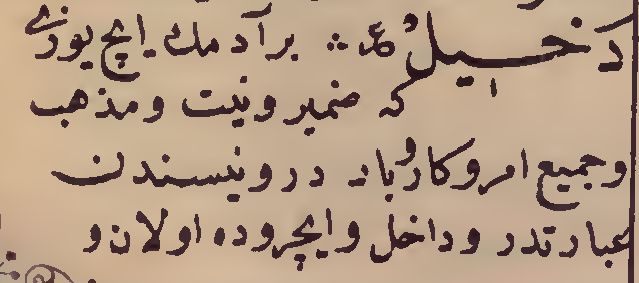 دخيل ع ⁘ بر آدمك ايچ يوزى
كه ضمير و نيت و مذهب
و جميع امر و كار و باد درونيسندن
عبارتدر و داخل و ايچروده اولان و